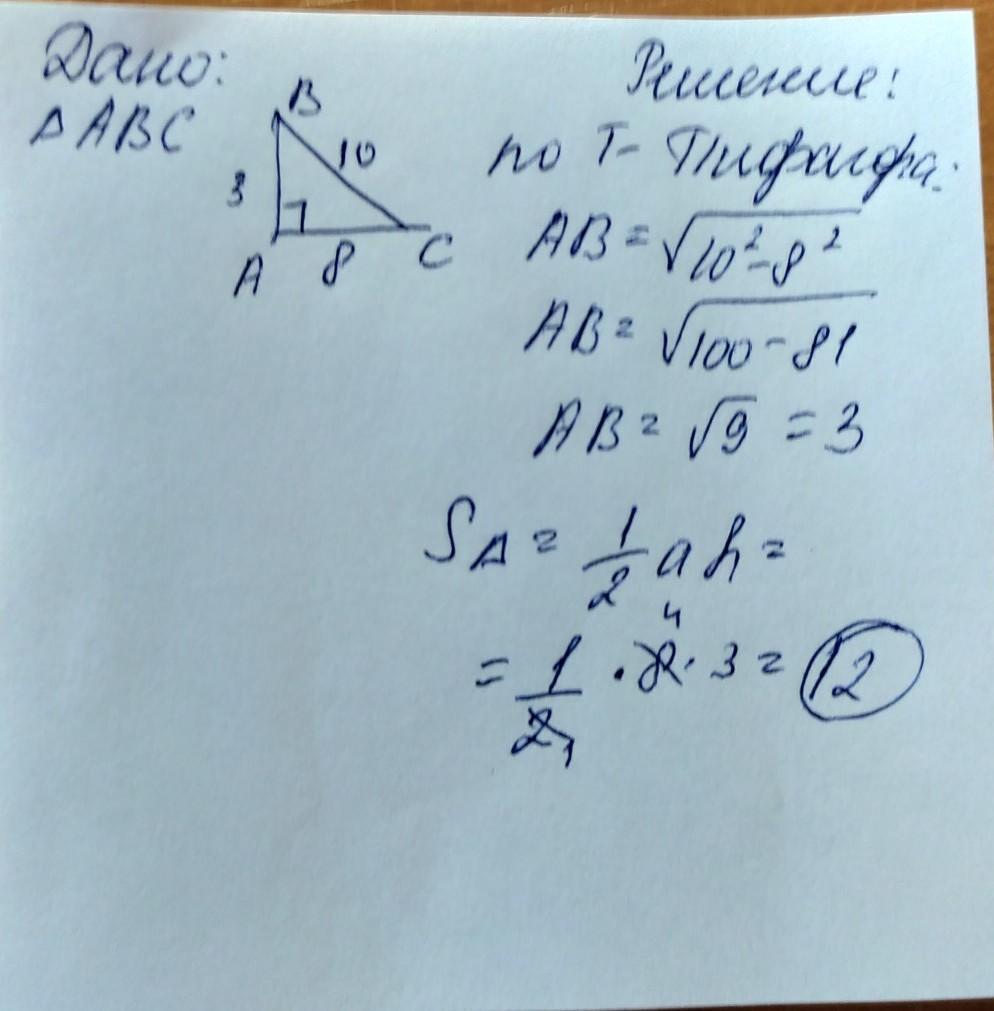 Дано:
△ABC
B
3
10
A
8
C
Решение:
по Т- Пифагора:
AB = √10²-8²
AB = √100-81
AB = √9 = 3
S△ = 1/2 a h =
4
= 1/2 · 8 · 3 = 12
1